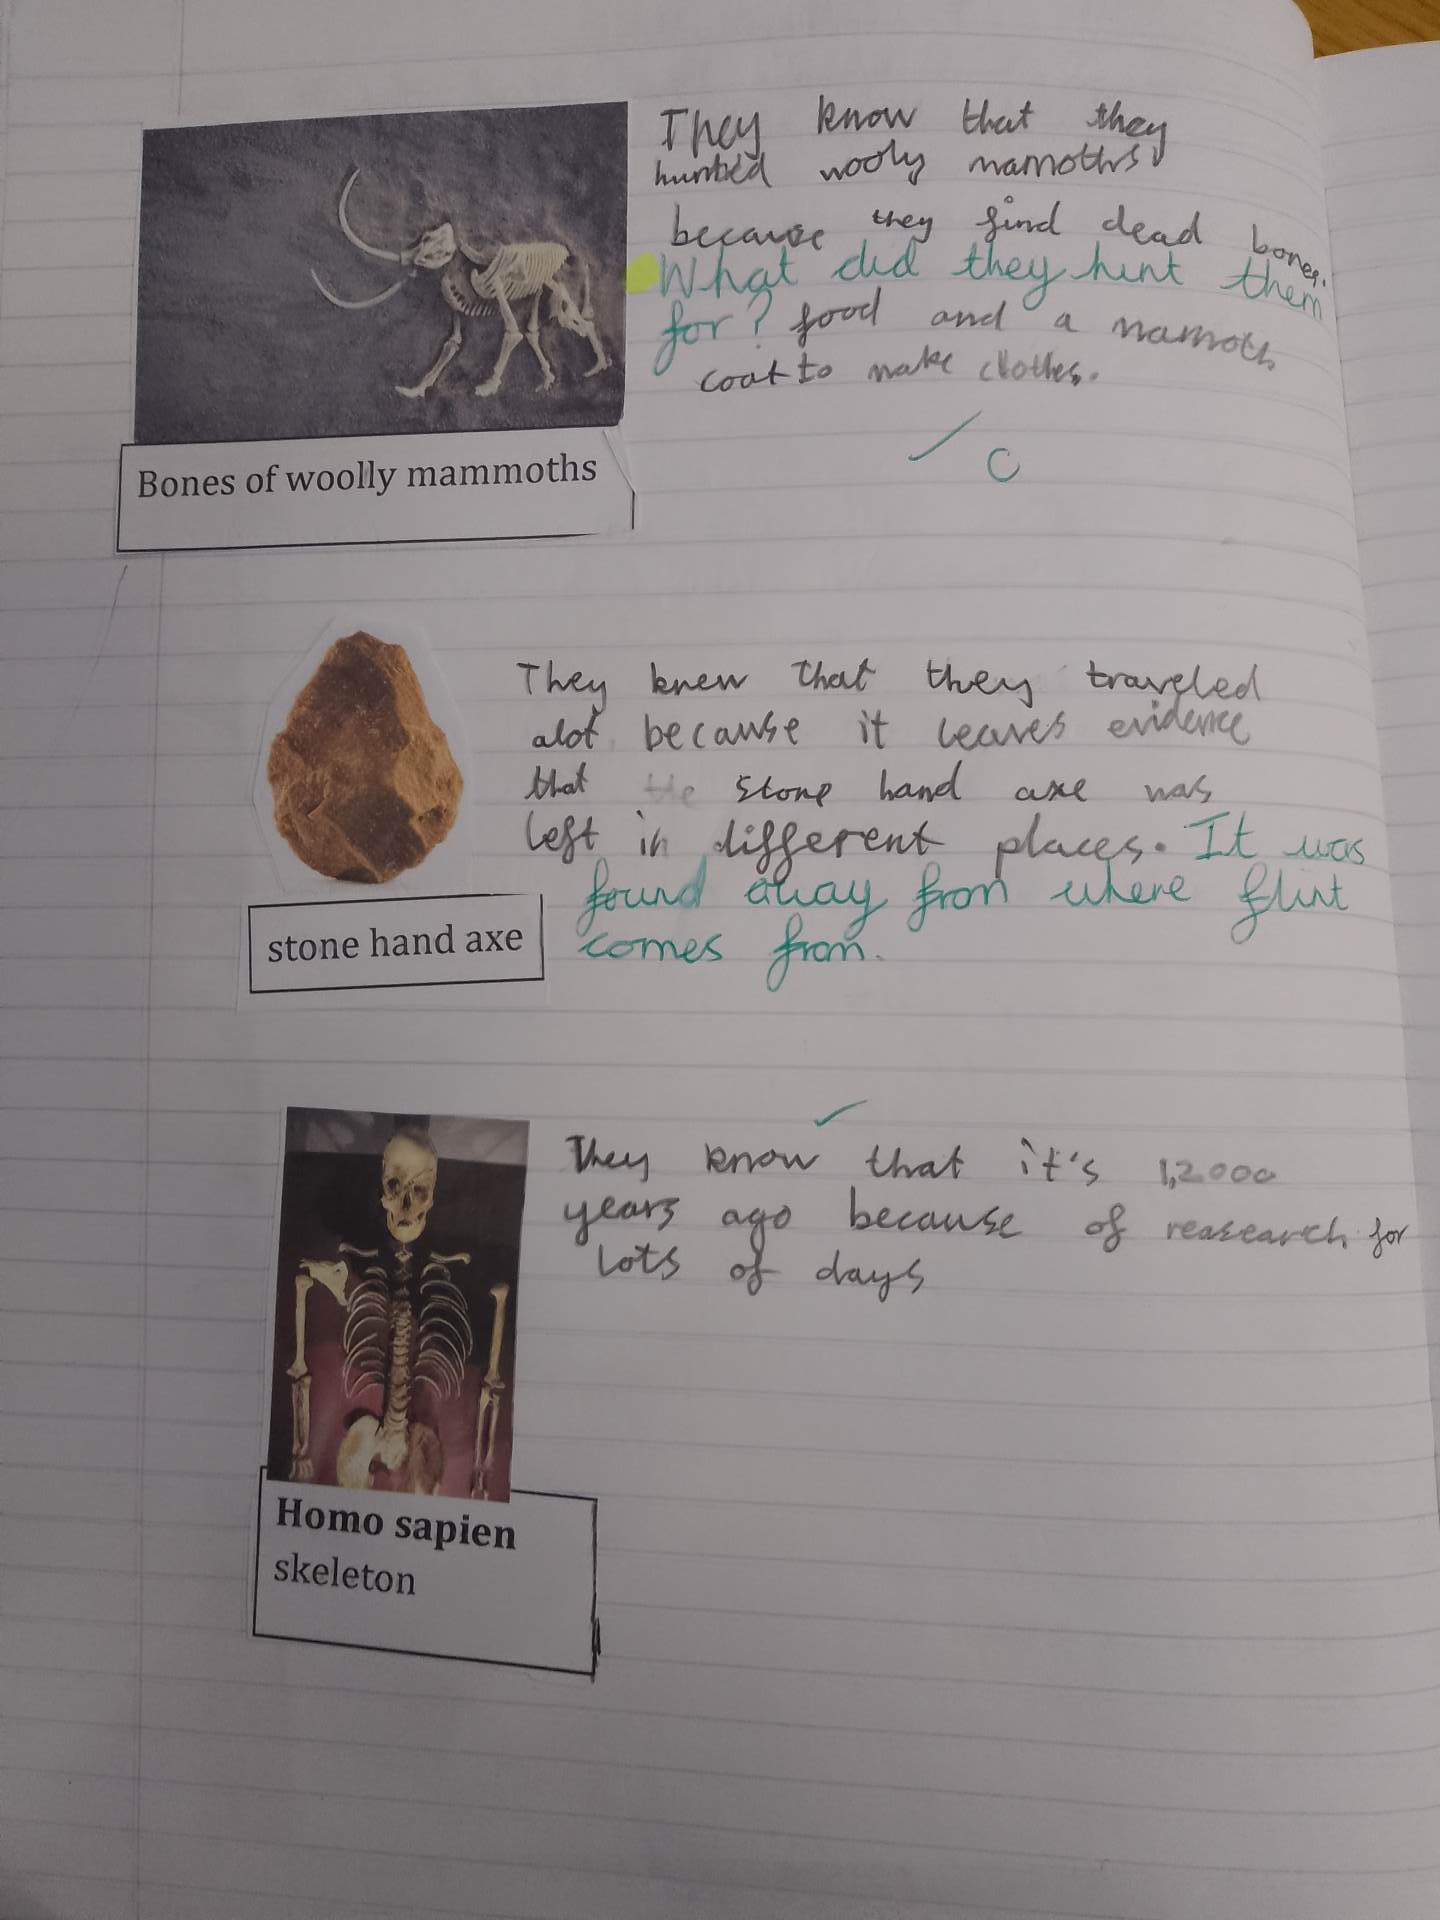 They know that they
hunted wooly mamoths
because they find dead bones.
What did they hunt them
for? food and a mamoth
coat to make clothes.
C
Bones of woolly mammoths
They knew that they traveled
alot because it leaves evidence
that the stone hand axe was
left in different places. It was
found away from where flint
comes from.
stone hand axe
They know that it's 1,2000
years ago because of reasearch for
lots of days
Homo sapien
skeleton